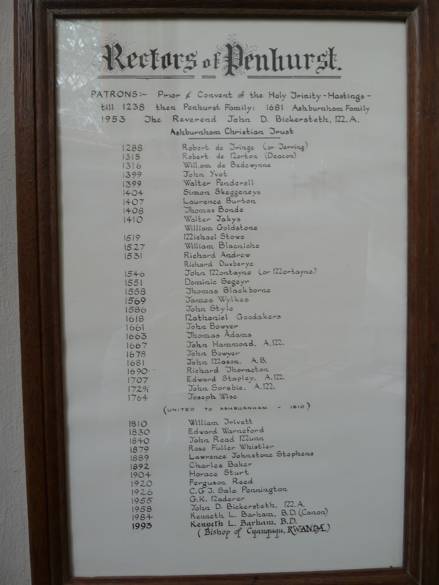 Rectors of Penhurst.
PATRONS:- Prior & Convent of the Holy Trinity - Hastings -
till 1238 then Penhurst Family: 1681 Ashburnham Family
1953 The Reverend John D. Bickersteth, M.A.
Ashburnham Christian Trust
1288 Robert de Iringe (or Jerring)
1315 Robert de Morton (Deacon)
1316 William de Bedewynne
1399 John Yvot
1399 Walter Penderell
1404 Simon Skeggeneys
1407 Laurence Burton
1408 Thomas Bonde
1410 Walter Jakys
William Goldstone
1519 Michael Stowe
1527 William Blacniche
1531 Richard Andrew
Richard Duxberye
1546 John Montayne (or Mortayne?
1551 Dominic Segeyr
1558 Thomas Blackborne
1569 James Wylkes
1586 John Style
1618 Nathaniel Goodakers
1661 John Bowyer
1663 Thomas Adams
1667 John Hammond, A.M.
1678 John Bowyer
1681 John Mason, A.B.
1690 Richard Thornton
1707 Edward Stapley, A.M.
172 John Sorsbie, A.M.
1764 Joseph Wise
(UNITED TO ASHBURNHAM - 1810)
1810 William Trivett
1830 Edward Warneford
1840 John Read Munn
1879 Rose Fuller Whistler
1889 Lawrence Johnstone Stephens
1892 Charles Baker
1904 Horace Sturt
1920 Ferguson Reed
1926 C.G.J. Sale Pennington
1955 G.K. Naderer
1958 John D. Bickersteth, M.A.
1984 Kenneth L. Barham, B.D. (Canon)
1993 Kenneth L. Barham, B.D.
(Bishop of Cyangugu, RWANDA)